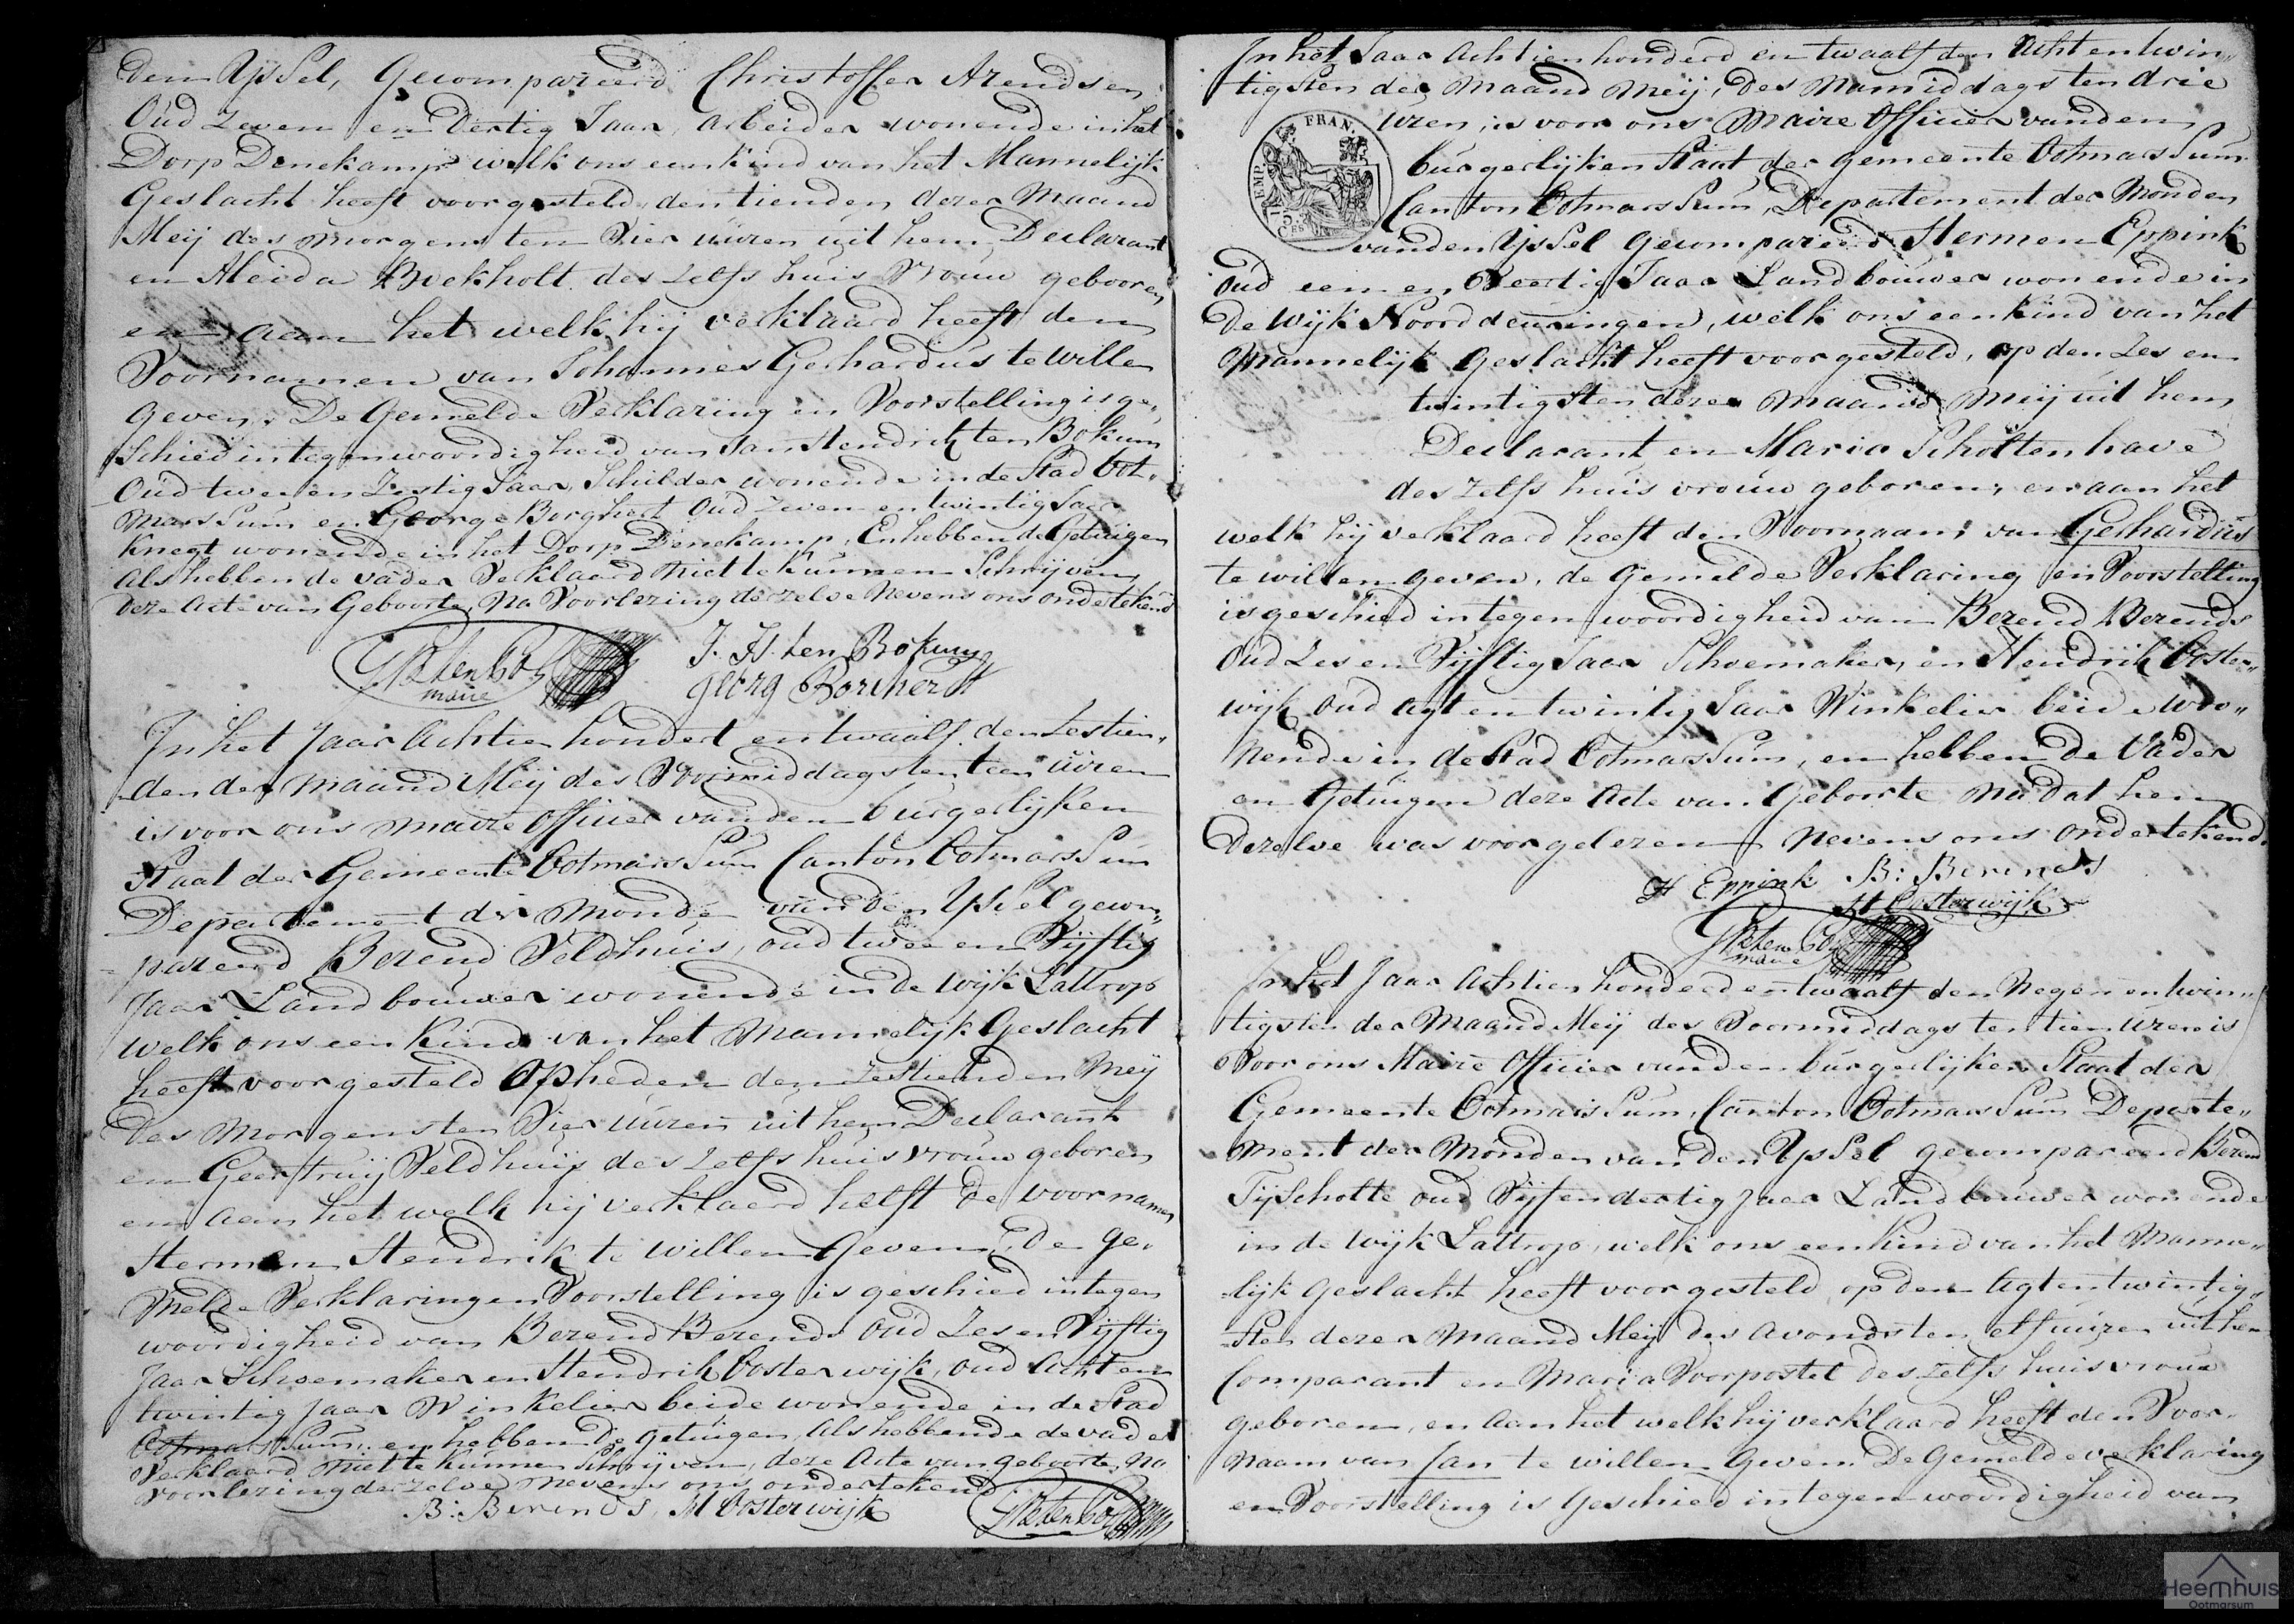 den Ÿssel, Gecompareerd Christoffer Arendsen
Oud zeven en Dertig Jaar, arbeider wonende in het
Dorp Denekamp welk ons een kind van het Mannelijk
Geslacht heeft voorgesteld, den tienden dezer Maand
Meij des morgens ten Vier uuren uit hem Declarant
en Aleida Boekholt des zelfs huis Vrouw gebooren,
en aan het welk hij verklaard heeft den
Voornamen van Johannes Gerhardus te willen
geven. De Gemelde Verklaring en Voorstelling is ge„
schied in tegenwoordigheid van Jan Hendrik ten Bokum
Oud twee en Zestig Jaar, Schilder wonende in de Stad Oot„
marssum en George Borghert Oud Zeven en twintig Jaar
Knegt wonende in het Dorp Denekamp, En hebben de Getuigen
als hebbende de vader Verklaard Niet te kunnen Schrijven,
deze Acte van Geboorte, Na Voorlezing derzelve Nevens ons ondertekend
maire
J. H. ten Bokum
Georg Borchert
In het Jaar Achtien hondert en twaalf den Zestien„
den der maand Meij des Voormiddags ten tien üüren
is voor ons maire officier van den burgerlijken
Staat der Gemeente Ootmarssum Canton Ootmarssum
Departement der Monde van den Yssel gecom„
pareerd Berend Veldhuis, oud twee en Vijftig
Jaar Landbouwer wonende in de Wijk Lattrop
welk ons een Kind van het Mannelijk Geslacht
heeft voorgesteld op heden den zestienden Meij
des Morgens ten Vier uuren uit hem Declarant
en Geertruij Veldhuijs des zelfs huisvrouw geboren
en aan het welk hij verklaerd heeft de voornamen
Hermen Hendrik te willen Geven. De ge„
melde Verklaring en Voorstelling is geschied in tegen
woordigheid van Berend Berends Oud Zes en Vijftig
Jaar Schoemaker en Hendrik Oosterwijk, oud Acht en
twintig Jaar Winkelier beide wonende in de Stad
Ootmarssum, en hebben de getuigen, als hebbende de vader
Verklaard Niet te kunnen Schrijven, deze Acte van geboorte, Na
Voorlezing derzelve Nevens ons ondertekend
B: Berends, H Oosterwijk
In het Jaar Achtien honderd en twaalf den Acht en twin„
tigsten der Maand Meij, des Namiddags ten drie
uren, is voor ons Maire Officier van den
burgerlijken Staat der gemeente Ootmarssum
Canton Ootmarssum, Departement der Monden
van den Yssel Gecompareerd Hermen Eppink
Oud een en Veertig Jaar Landbouwer wonende in
De Wijk Noorddeuringen, welk ons een kind van het
Mannelijk Geslacht heeft voorgesteld, op den Zes en
twintigsten dezer Maand Meij uit hem
Declarant en Maria Scholtenhave
des zelfs huis vrouw geboren, en aan het
welk hij verklaard heeft den Voornaam van Gerhardus
te willen geven, de Gemelde Verklaring en Voorstelling
is geschied in tegenwoordigheid van Berend Berends
Oud Zes en Vijftig Jaar Schoemaker, en Hendrik Ooster„
wijk Oud Agt en twintig Jaar Winkelier beide woo„
nende in de Stad Ootmarssum, en hebben de Vader
en Getuigen deze Acte van Geboorte Nadat hem
dezelve was voorgelezen Nevens ons ondertekend.
H Eppink B: Berends
H Oosterwijk
maire
In het Jaar Achtien honderd en twaalf den Negen en twin„
tigsten der Maand Meij des Voormiddags ten tien uren is
Voor ons Maire Officier van den burgerlijken Staat der
Gemeente Ootmarssum, Canton Ootmarssum Departe„
ment der Monden van den Yssel gecompareerd Berend
Tijscholte oud Vijf en dertig Jaar Landbouwer wonende
in de Wijk Lattrop, welk ons een kind van het Manne„
lijk Geslacht heeft voorgesteld op den Agt en twintig„
sten dezer Maand Meij des avonds ten elf uuren uit hem
Comparant en Maria Voorpostel des zelfs huisvrouw
geboren, en aan het welk hij verklaard heeft den Voor„
naam van Jan te willen Geven. De Gemelde verklaring
en Voorstelling is Geschied in tegenwoordigheid van
EMP. FRAN.
75
Heemhuis
Ootmarsum